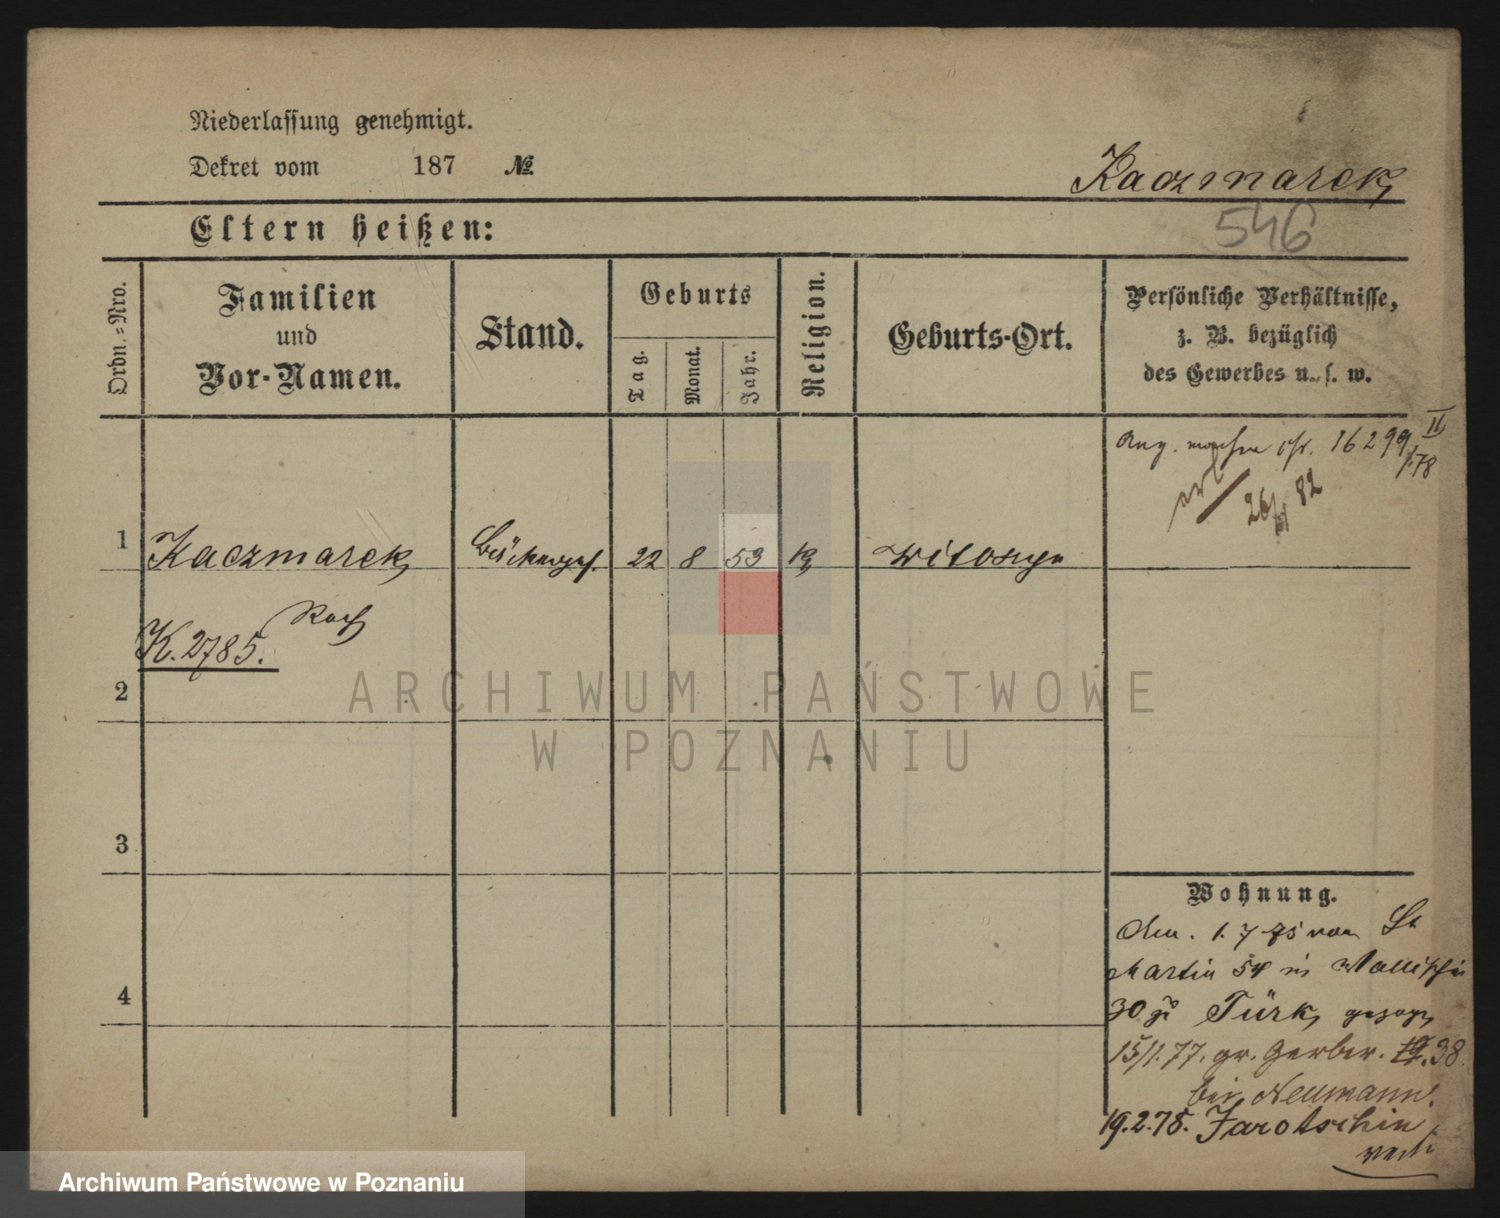 Niederlassung genehmigt.
Dekret vom 187 №
Kaczmarek
546
Eltern heißen:
Ordn.=Nro.
Familien
und
Vor-Namen.
Stand.
Geburts
Tag.
Monat.
Jahr.
Religion.
Geburts-Ort.
Persönliche Verhältnisse,
z. B. bezüglich
des Gewerbes u. s. w.
16299 II
/.78
26/ 82
1 Kaczmarek Bäckerges. 22 8 53 K Witoszyn
Roch
K. 2785.
2
3
4
Wohnung.
1. 7 75 von St
Martin 54 in Wallischei
30 zu Türk gezogen
15/1.77. gr. Gerber. 38.
bei Neumann.
19.2.78. Jarotschin
ARCHIWUM PAŃSTWOWE
W POZNANIU
Archiwum Państwowe w Poznaniu